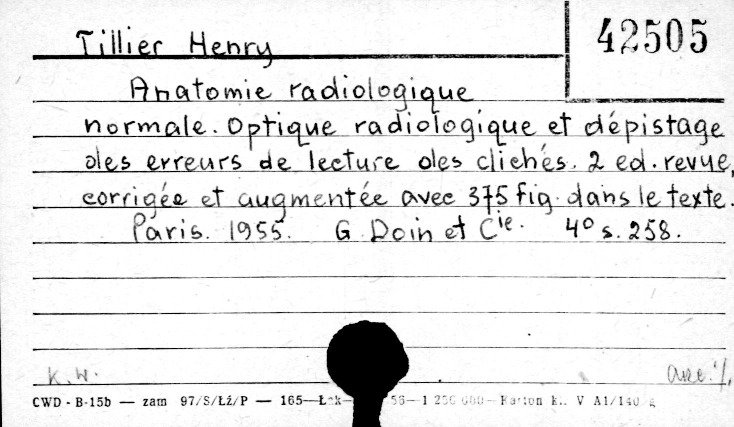 Tillier Henry
42505
Anatomie radiologique
normale. Optique radiologique et dépistage
des erreurs de lecture des clichés. 2 ed. revue,
corrigée et augmentée avec 375 fig. dans le texte.
Paris. 1955. G. Doin et Cie. 4° s. 258.
K.W.
CWD - B-15b — zam 97/S/Łź/P — 165—Łzk— 56—1 250 000— Karton k.. V A1/140 g